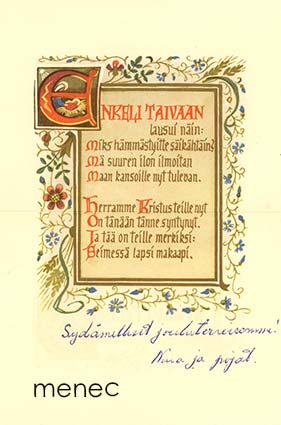 ENKELI TAIVAAN
lausui näin:
Miks hämmästyitte säikähtäin?
Mä suuren ilon ilmoitan
Maan kansoille nyt tulevan.
Herramme Kristus teille nyt
On tänään tänne syntynyt.
Ja tää on teille merkiksi:
Seimessä lapsi makaapi.
Sydämelliset jouluterveisemme!
ja pojat.
menec